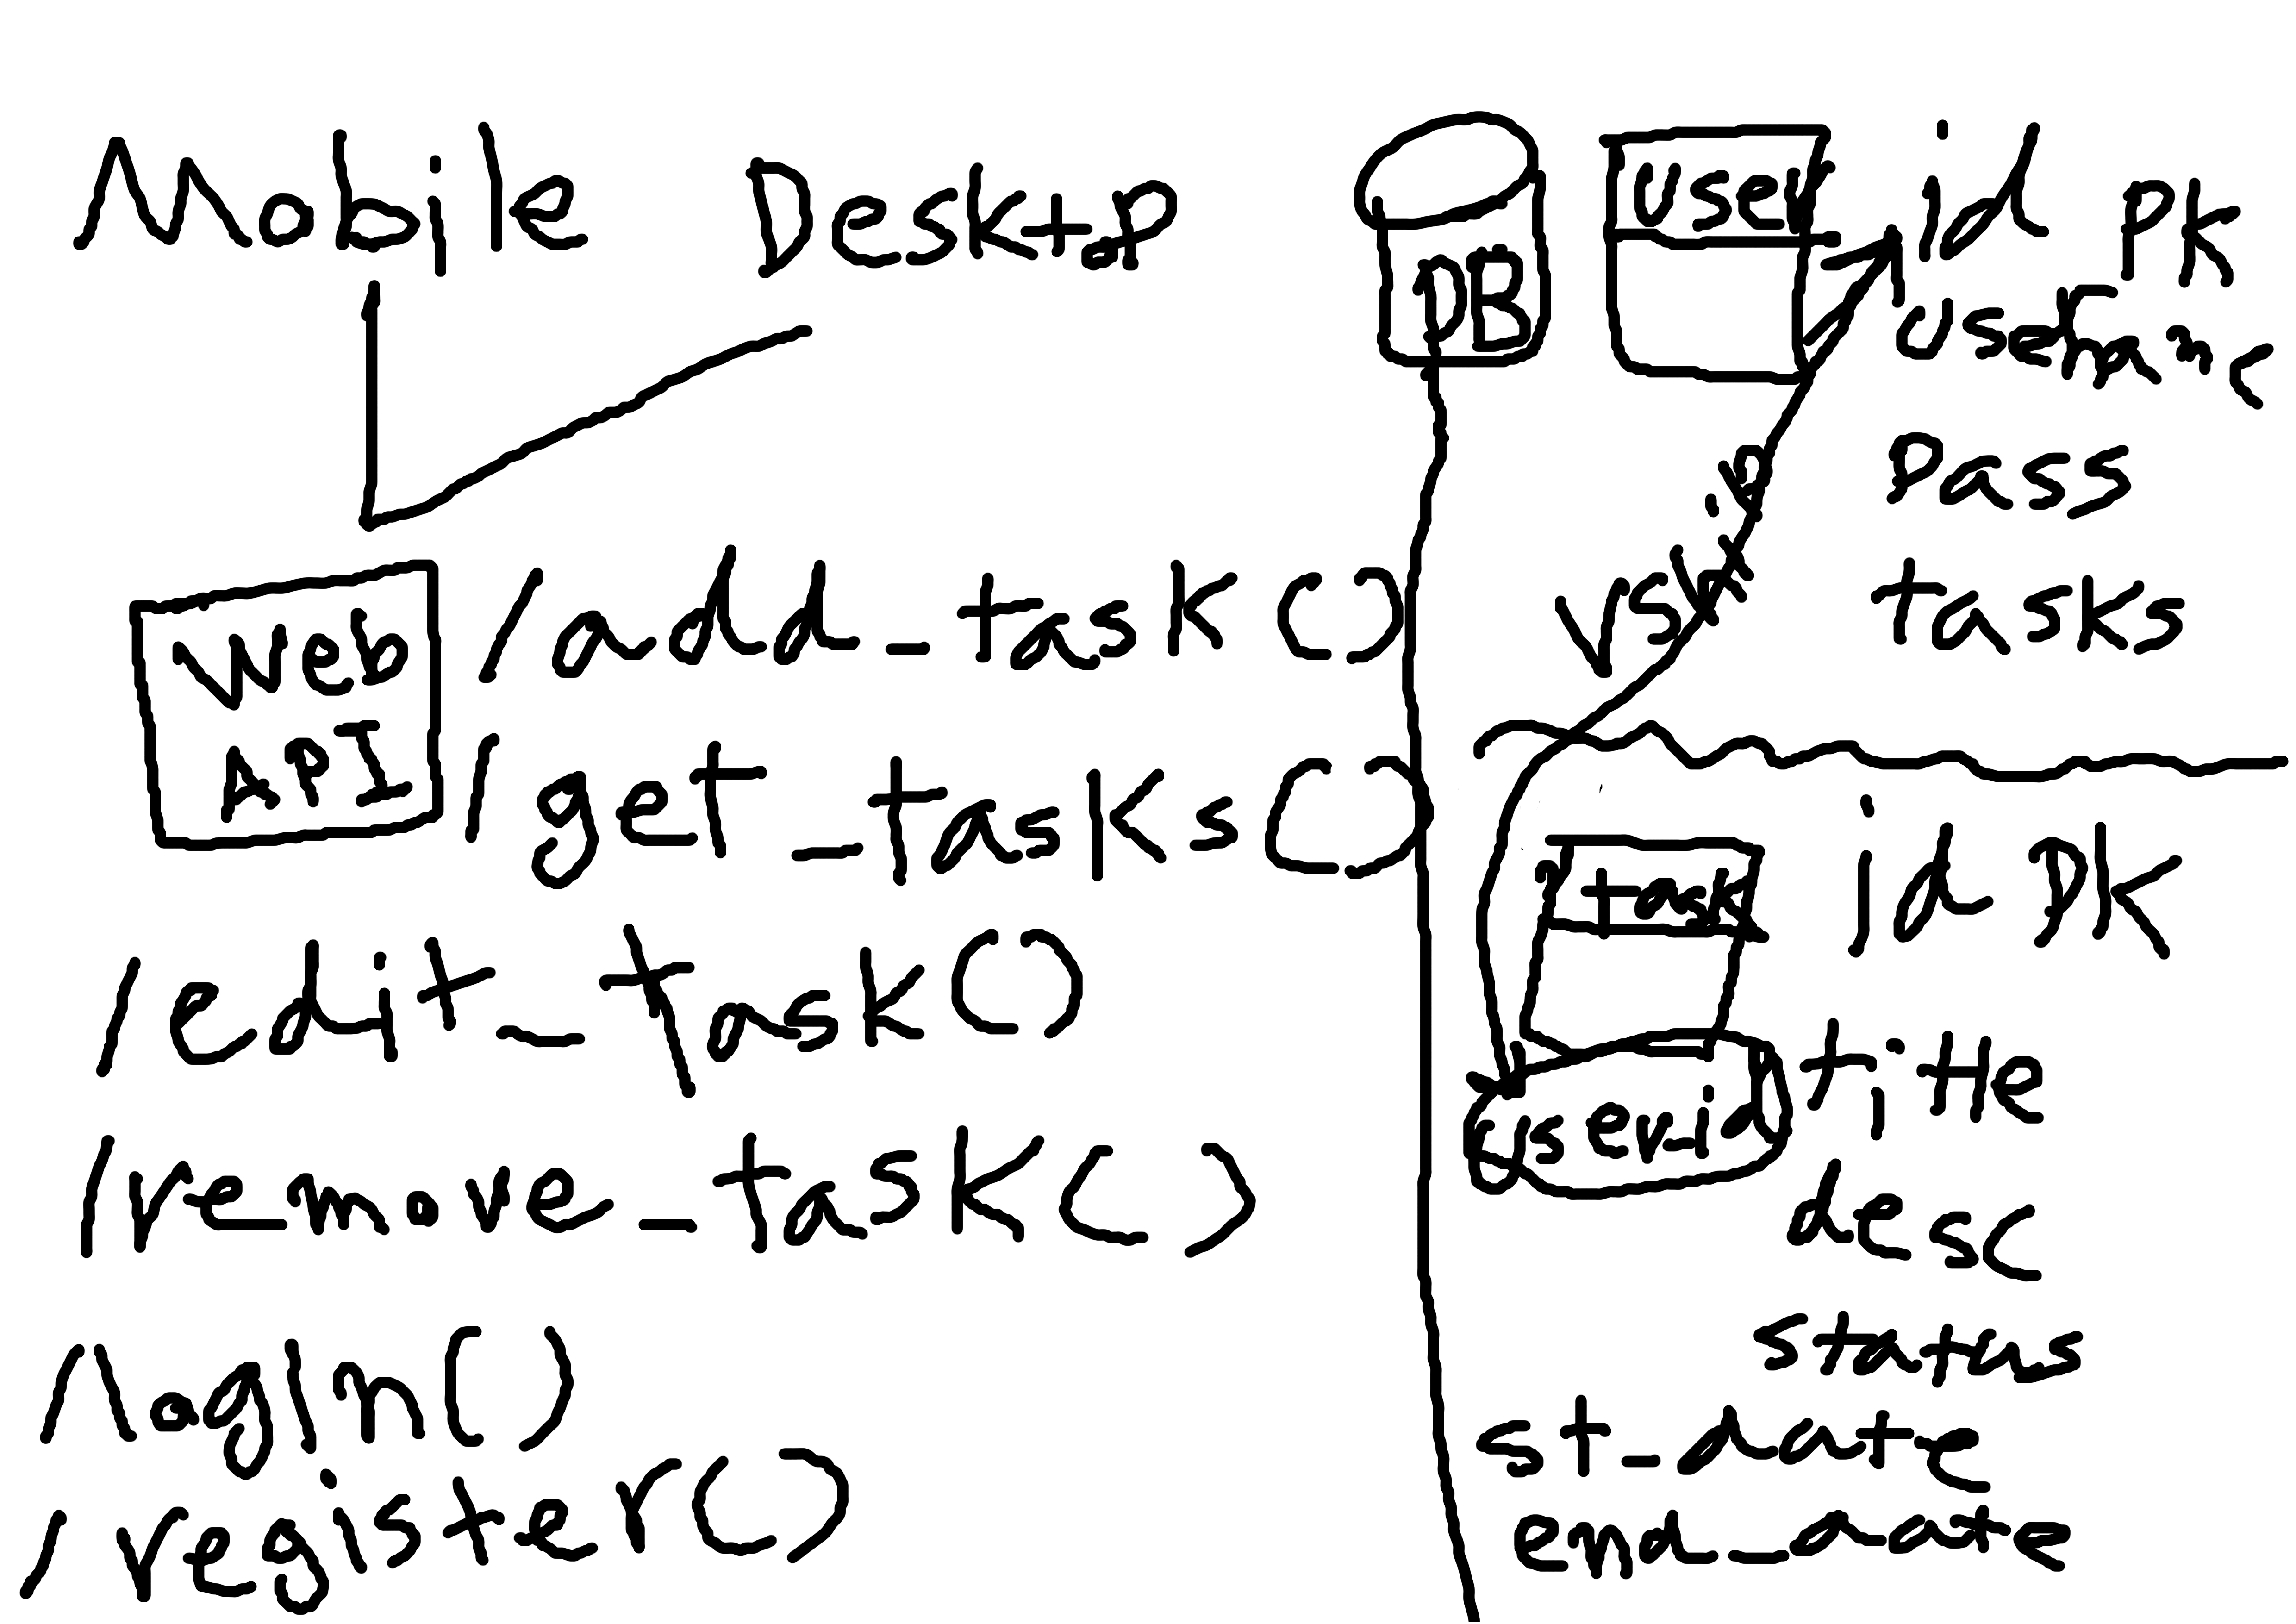 Mobile Desktop
Web
API
/add_task()
/get_tasks()
/edit_task()
/remove_task()
/login()
/register()
DB
User
id PK
Pass
tasks
task
id PK
userid
title
desc
status
st_date
end_date